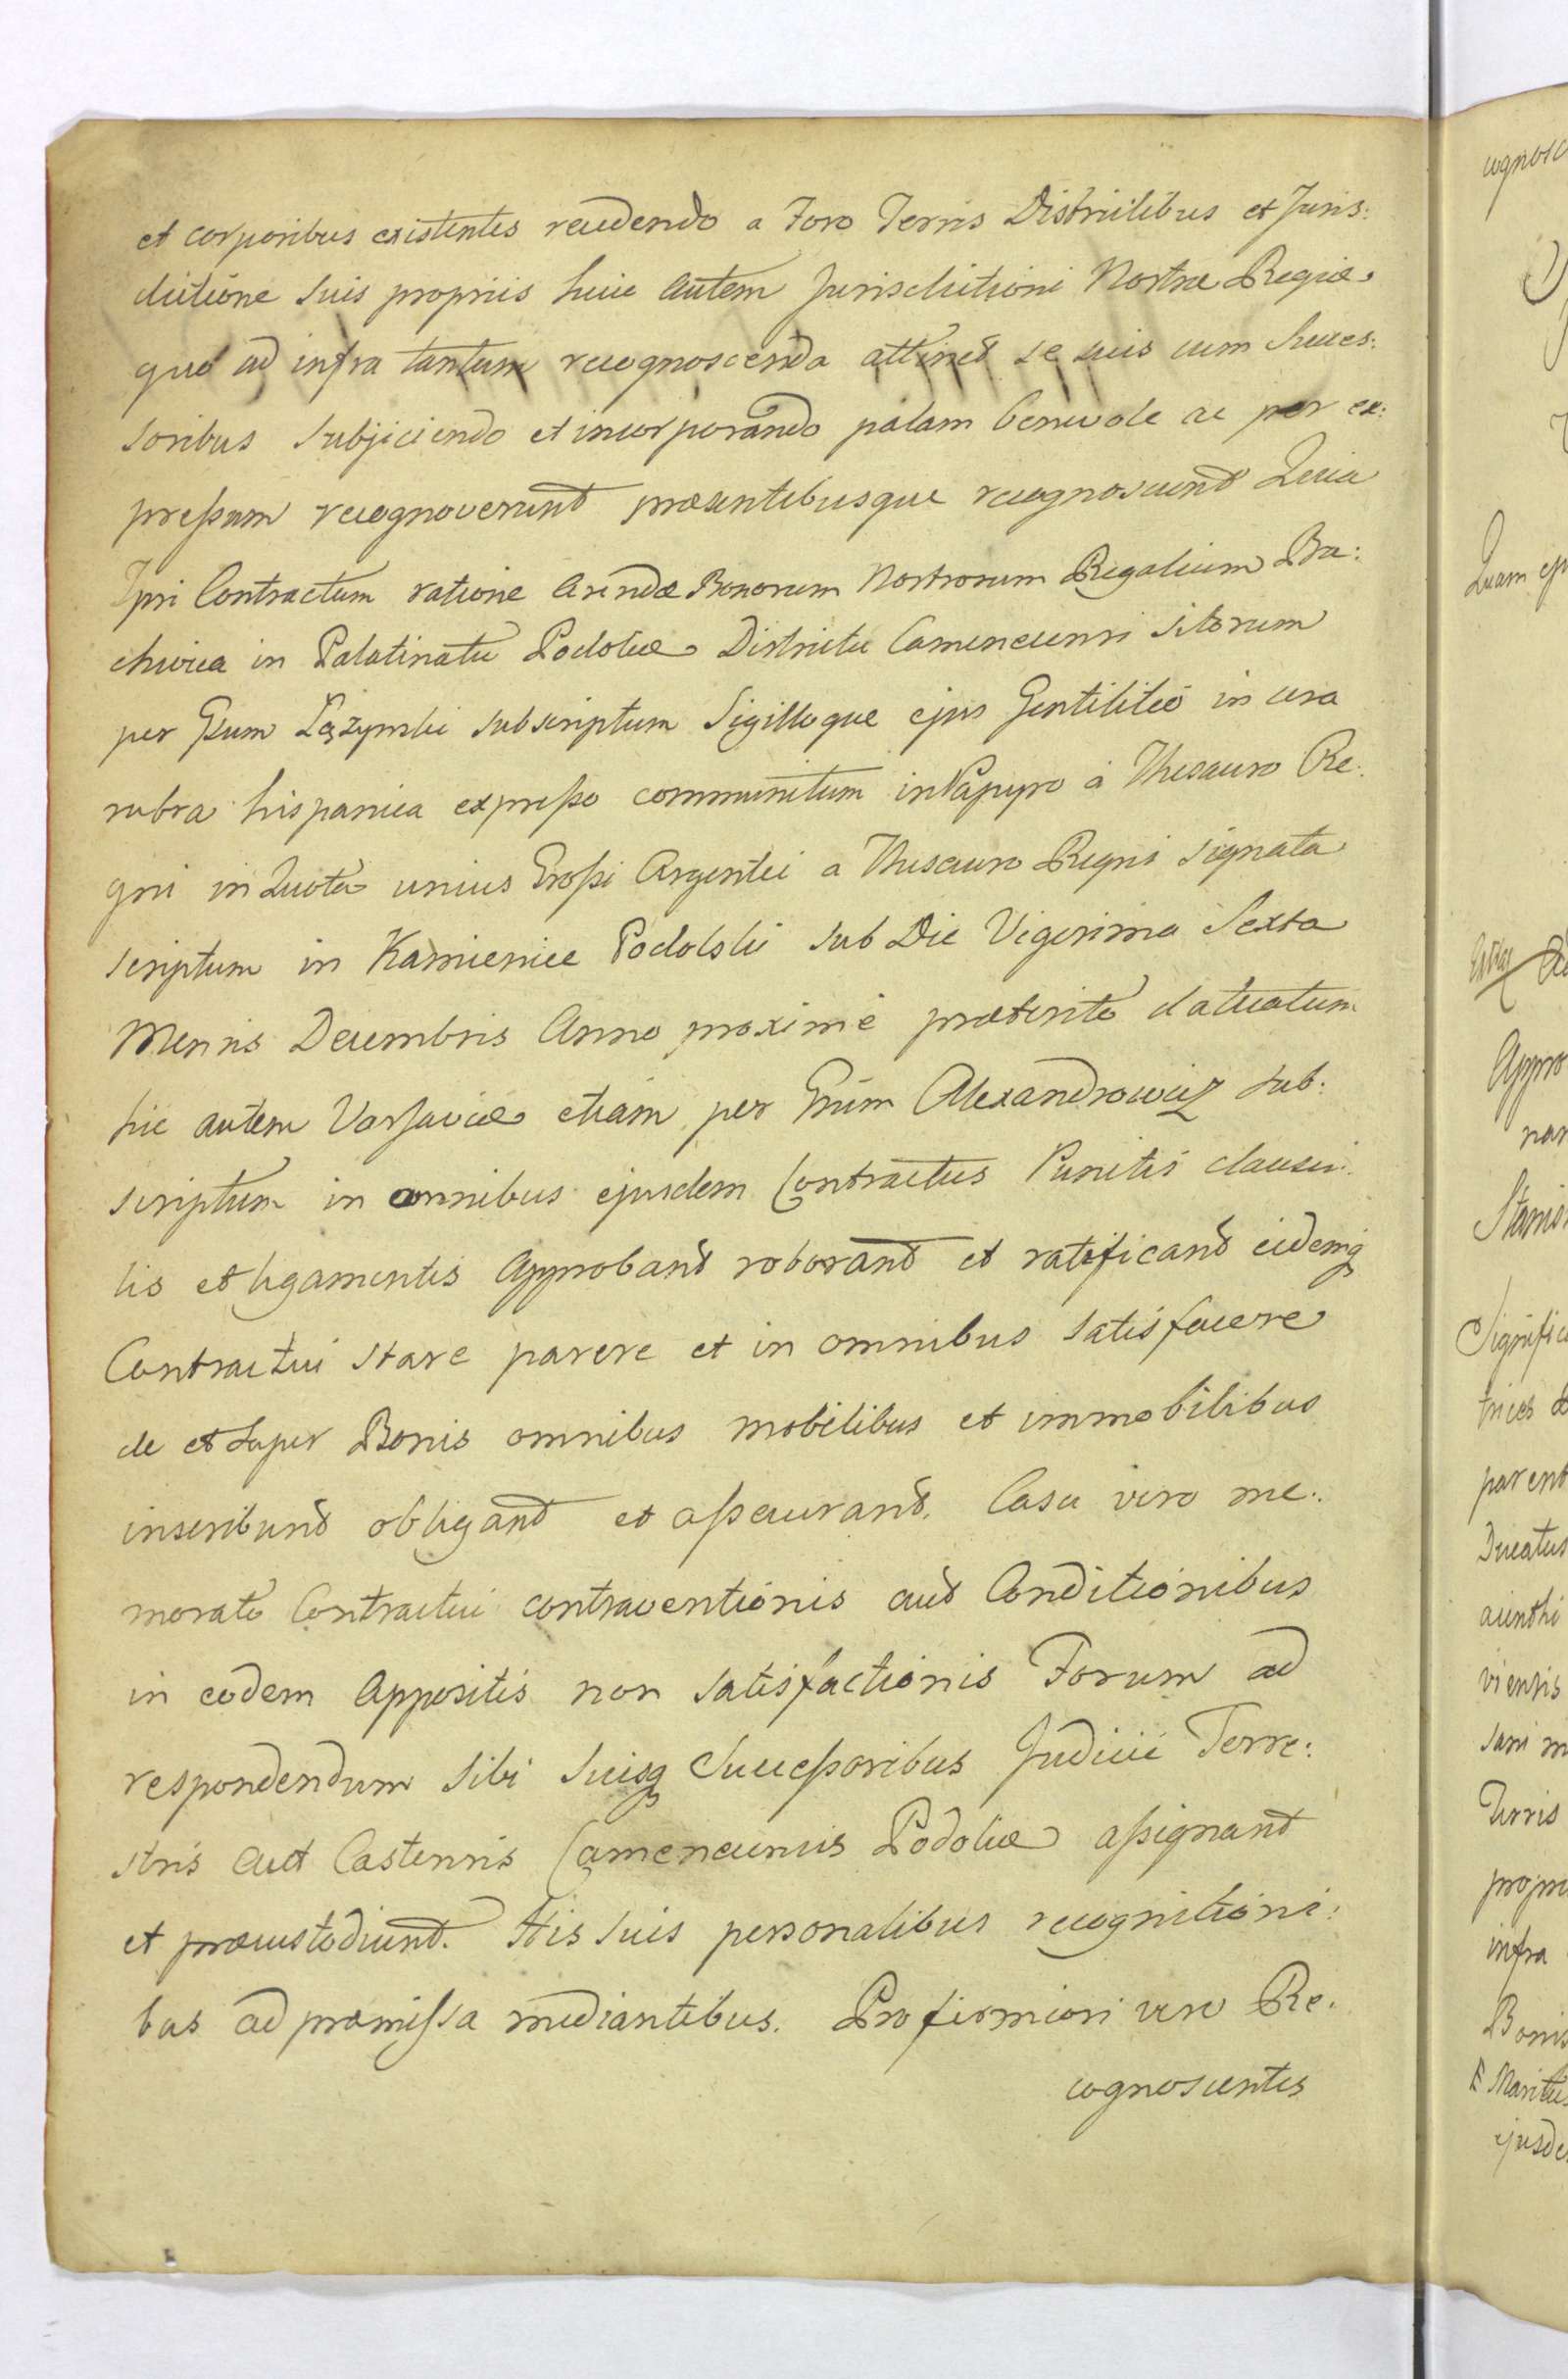 et corporibus existentes recedendo a Foro Terris Districtibus et Juris:
dictione Suis propriis huic autem Jurisdictioni Nostræ Regiæ
quo ad infra tantum recognoscenda attinet se suis cum Succes:
soribus Subjiciendo et incorporando palam benevole ac per ex:
preſsum recognoverunt præsentibusque recognoscunt Quia
Ipsi Contractum ratione Arendæ Bonorum Nostrorum Regalium Ba:
chwica in Palatinatu Podoliæ Districtu Camenecensi Sitorum
per Gsum Łęzynski subscriptum Sigilloque ejus Gentilitio in cera
rubra hispanica expreſso communitum in Papyro à Thesauro Re:
gni in Quota unius Groſsi Argentei a Thesauro Regni signata
scriptum in Kamieniec Podolski sub Die Vigesima Sexta
Mensis Decembris Anno proxime præterito datuatum
hic autem Varsaviæ etiam per Gsum Alexandrowicz sub:
scriptum in omnibus ejusdem Contractus Punctis clausu:
lis et ligamentis Approbant roborant et ratificant eidemq
Contractui stare parere et in omnibus satisfacere
de et super Bonis omnibus mobilibus et immobilibus
inscribunt obligant et aſsecurant. Casu vero me:
morato Contractui contraventionis aut Conditionibus
in eodem Appositis non satisfactionis Forum ad
respondendum sibi Suisq Succeſsoribus Judicii Terre:
stris aut Castrensis Camenecensis Podoliæ aſsignant
et præcustodiunt. His Suis personalibus recognitioni:
bus ad præmiſsa mediantibus. Pro firmiori vero Re:
cognoscentes
cognosc
Quam
Appro
nar
Stanis
Significa
trices
parent
Ducatus
viensis
Terris
propri
infra
Bonis
Maritus
ejusde